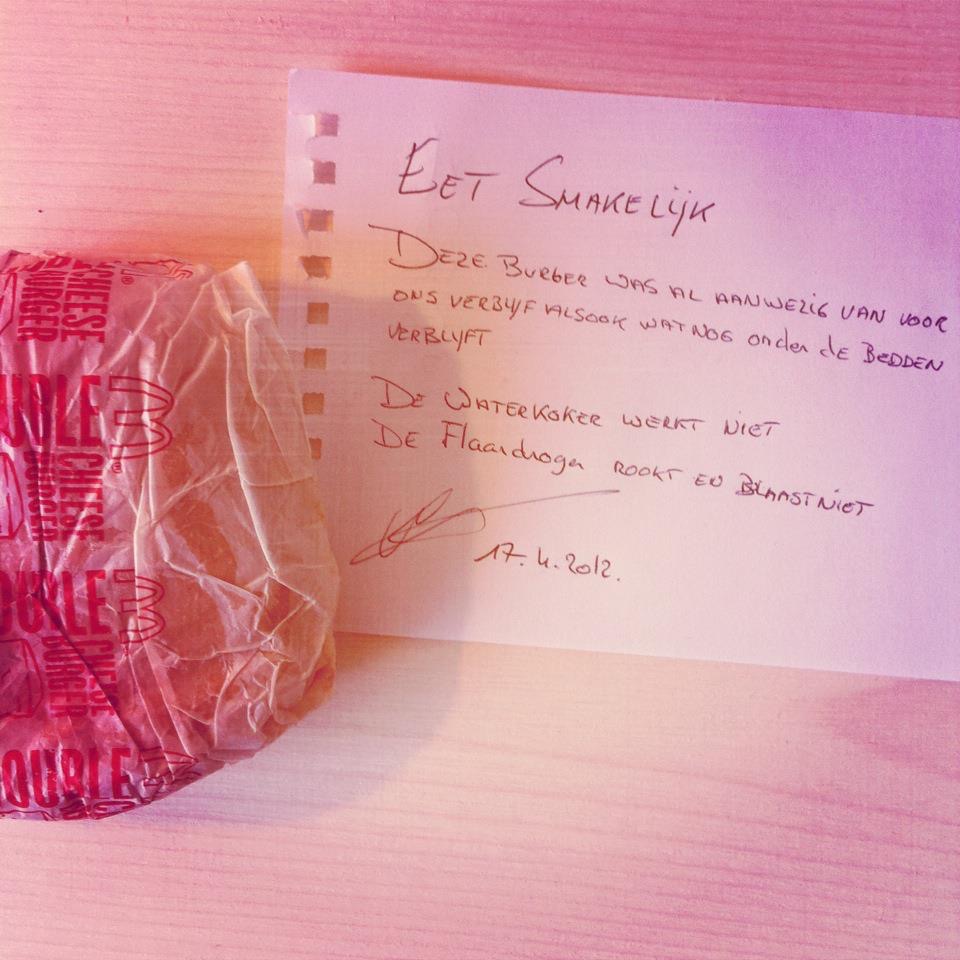 Eet Smakelijk
Deze Burger was al aanwezig van voor
ons verblijf alsook wat nog onder de Bedden
verblijft
De Waterkoker werkt niet
De Haardroger rookt en Blaast niet
17.4.2012.
CHEESE
BURGER
DOUBLE
CHEESE
BURGER
DOUBLE
CHEESE
BURGER
DOUBLE